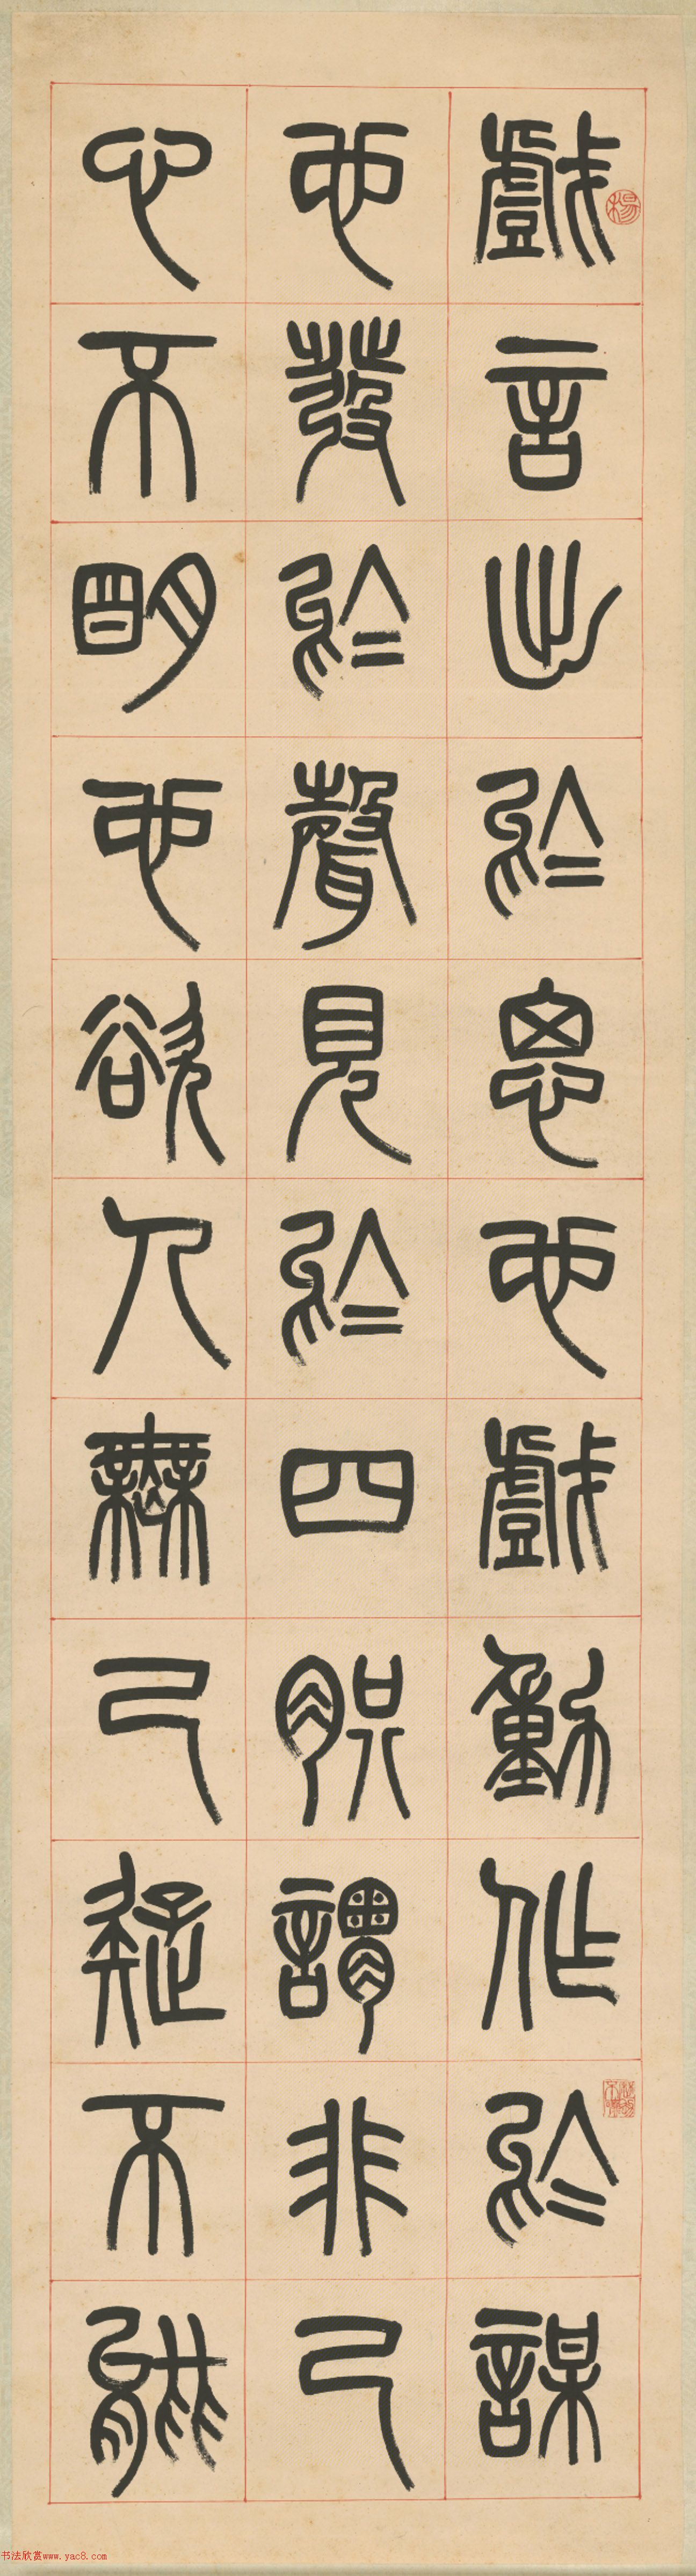 戲言出於思也戲動作於謀
也發於聲見於四胑謂非己
心不明也欲人無己疑不能
楊
书法欣赏www.yac8.com